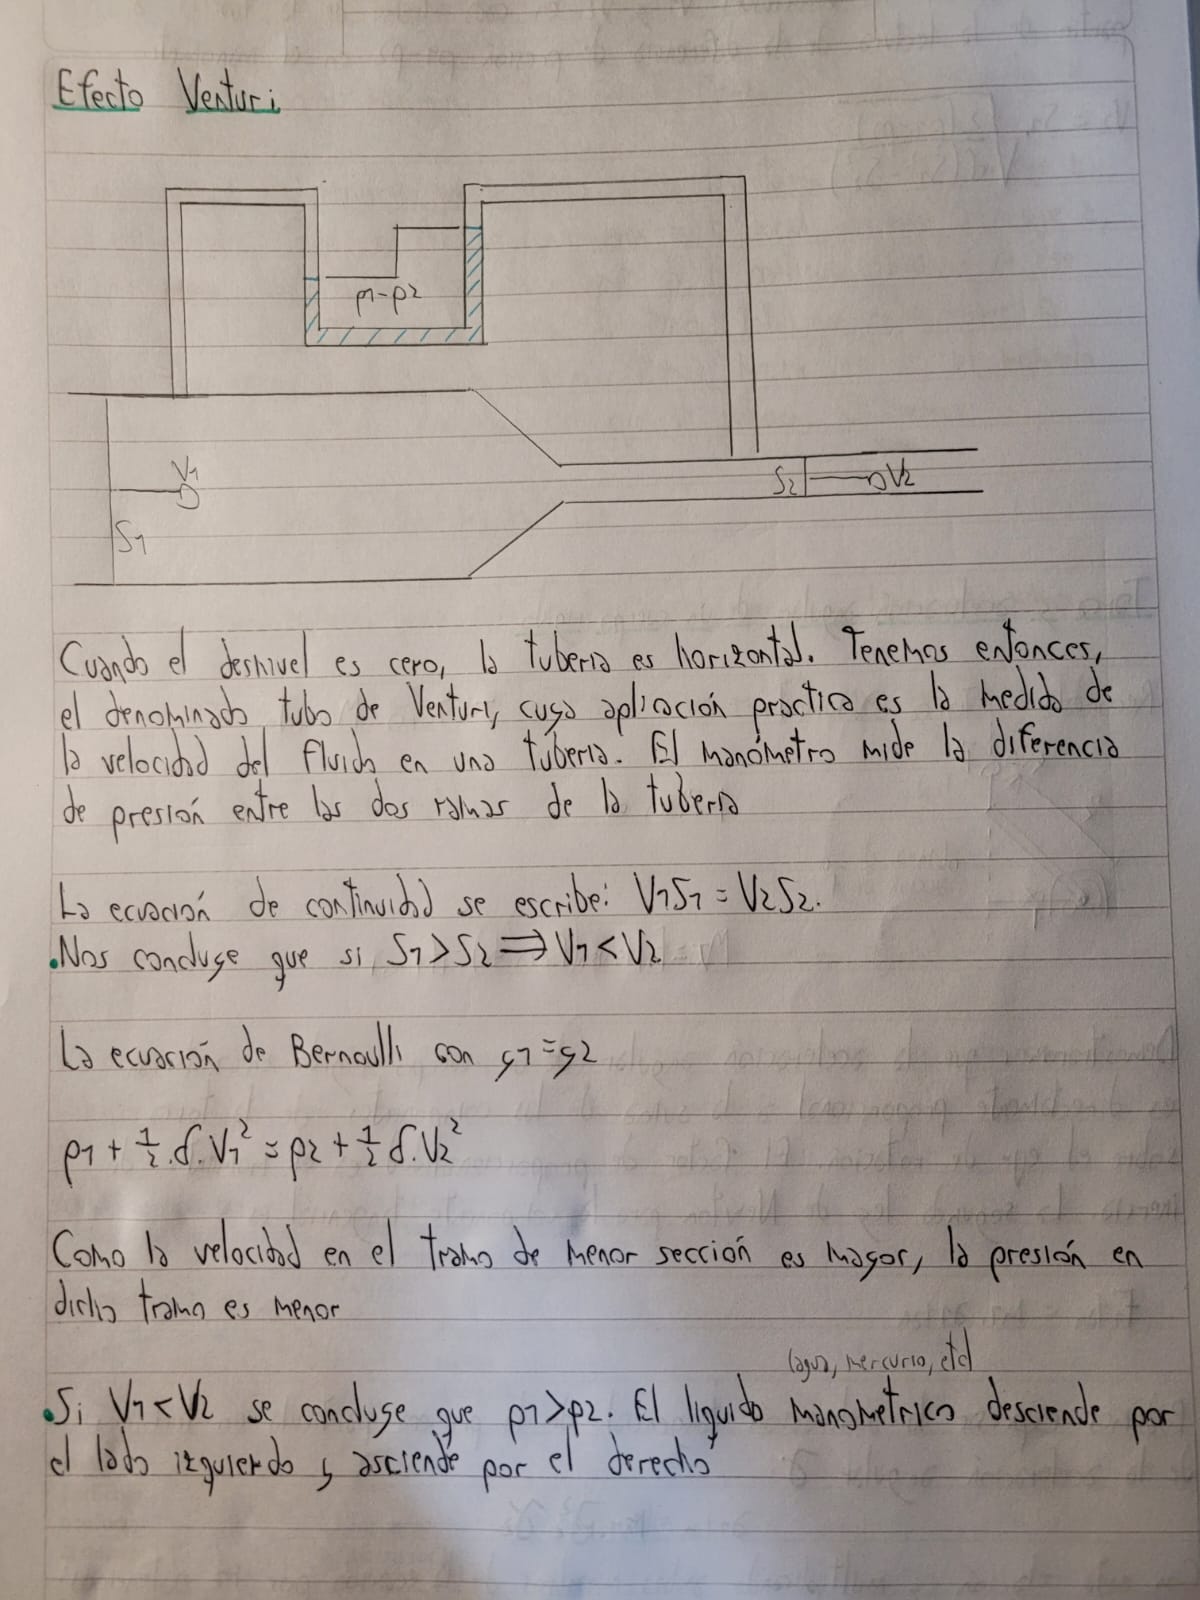 Efecto Venturi
p1-p2
V1
S1
S2
V2
Cuando el desnivel es cero, la tuberia es horizontal. Tenemos entonces,
el denominado tubo de Venturi, cuya aplicación practica es la medida de
la velocidad del fluido en una tuberia. El manómetro mide la diferencia
de presión entre las dos ramas de la tuberia
La ecuación de continuidad se escribe: V1S1 = V2S2.
•Nos concluye que si S1 > S2 ⟹ V1 < V2
La ecuación de Bernoulli con y1=y2
p1 + 1/2.d.V1² = p2 + 1/2 d.V2²
Como la velocidad en el tramo de menor sección es mayor, la presión en
dicho tramo es menor
(agua, mercurio, etc)
•Si V1 < V2 se concluye que p1 > p2. El liquido manometrico desciende por
el lado izquierdo y asciende por el derecho